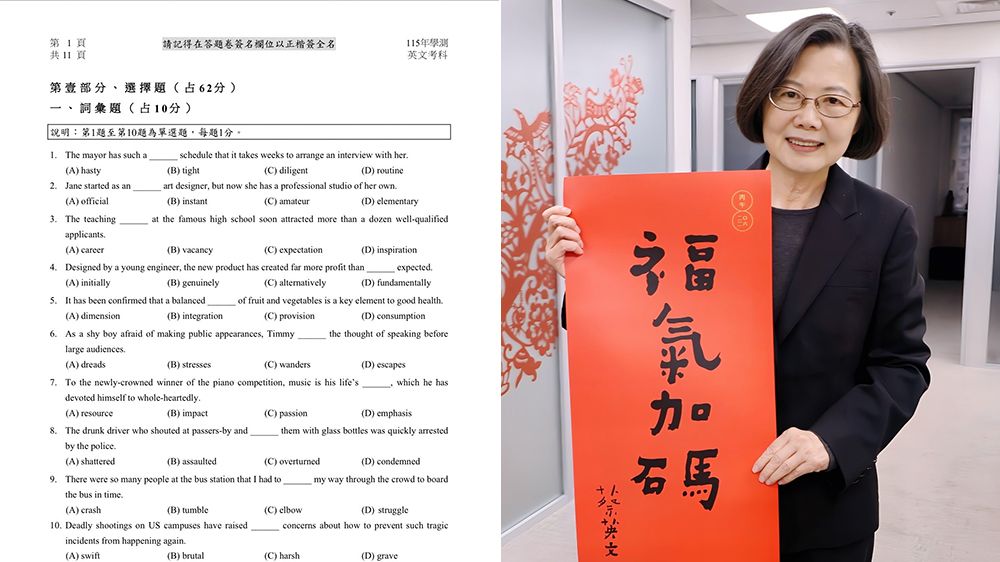 第 1 頁
共 11 頁
請記得在答題卷簽名欄位以正楷簽全名
115年學測
英文考科
第壹部分、選擇題（占62分）
一、詞彙題（占10分）
說明：第1題至第10題為單選題，每題1分。
1. The mayor has such a ______ schedule that it takes weeks to arrange an interview with her.
(A) hasty (B) tight (C) diligent (D) routine
2. Jane started as an ______ art designer, but now she has a professional studio of her own.
(A) official (B) instant (C) amateur (D) elementary
3. The teaching ______ at the famous high school soon attracted more than a dozen well-qualified
applicants.
(A) career (B) vacancy (C) expectation (D) inspiration
4. Designed by a young engineer, the new product has created far more profit than ______ expected.
(A) initially (B) genuinely (C) alternatively (D) fundamentally
5. It has been confirmed that a balanced ______ of fruit and vegetables is a key element to good health.
(A) dimension (B) integration (C) provision (D) consumption
6. As a shy boy afraid of making public appearances, Timmy ______ the thought of speaking before
large audiences.
(A) dreads (B) stresses (C) wanders (D) escapes
7. To the newly-crowned winner of the piano competition, music is his life’s ______, which he has
devoted himself to whole-heartedly.
(A) resource (B) impact (C) passion (D) emphasis
8. The drunk driver who shouted at passers-by and ______ them with glass bottles was quickly arrested
by the police.
(A) shattered (B) assaulted (C) overturned (D) condemned
9. There were so many people at the bus station that I had to ______ my way through the crowd to board
the bus in time.
(A) crash (B) tumble (C) elbow (D) struggle
10. Deadly shootings on US campuses have raised ______ concerns about how to prevent such tragic
incidents from happening again.
(A) swift (B) brutal (C) harsh (D) grave
丙午
二〇二六
福氣加碼
蔡英文